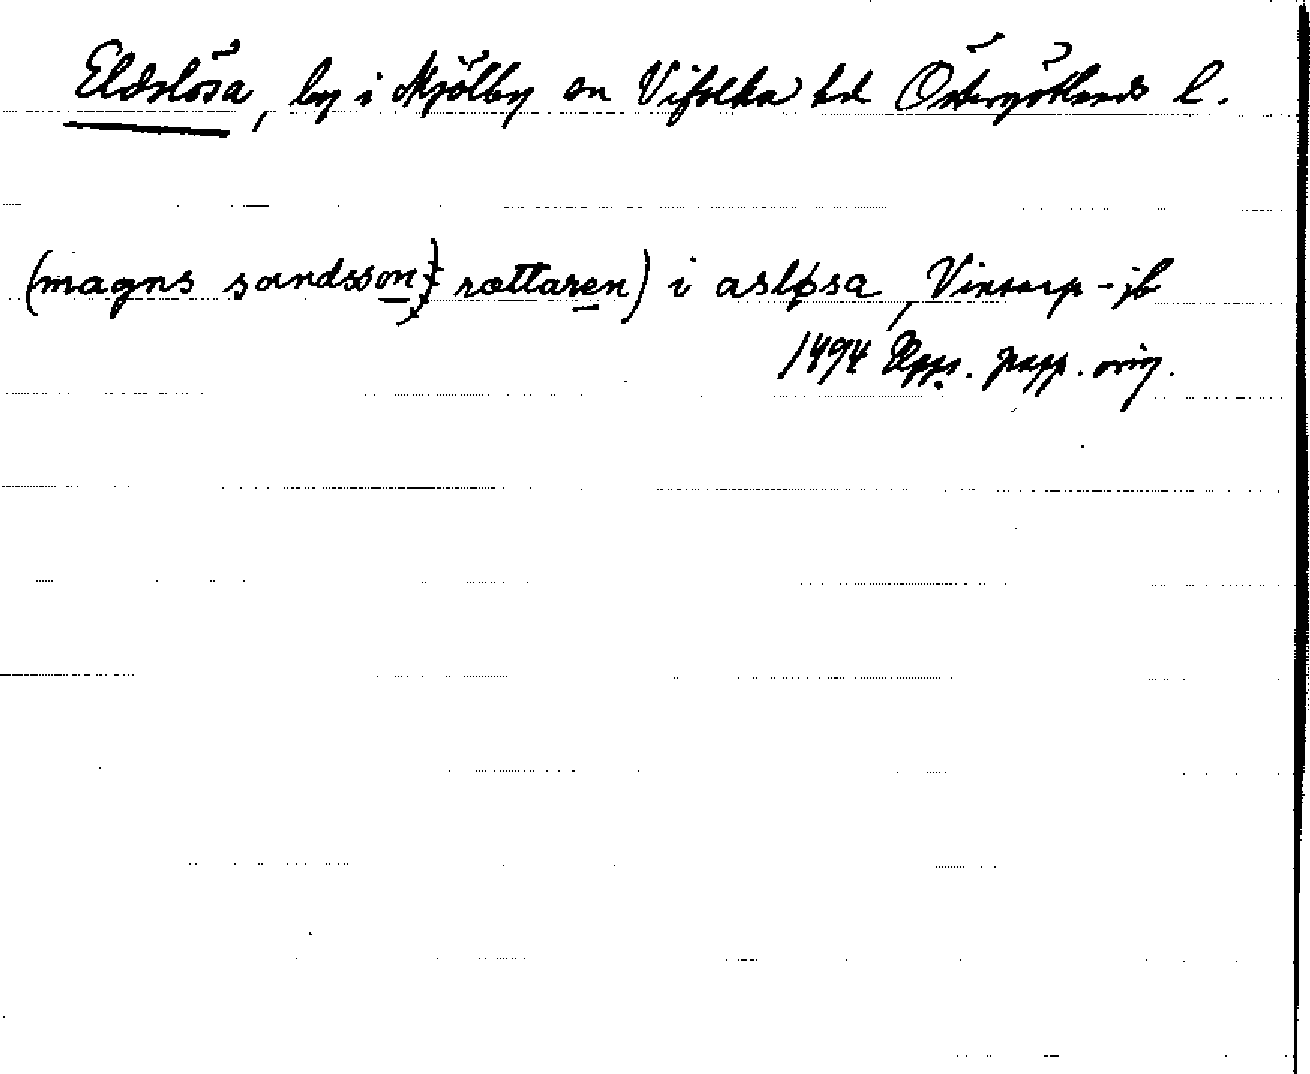 Eldslösa, by i Mjölby sn Vifolka hd Östergötlands l.
(magns sændsson) rættaren) i asløsa, Vinstorp-jb
1494 Upps. papp. orig.